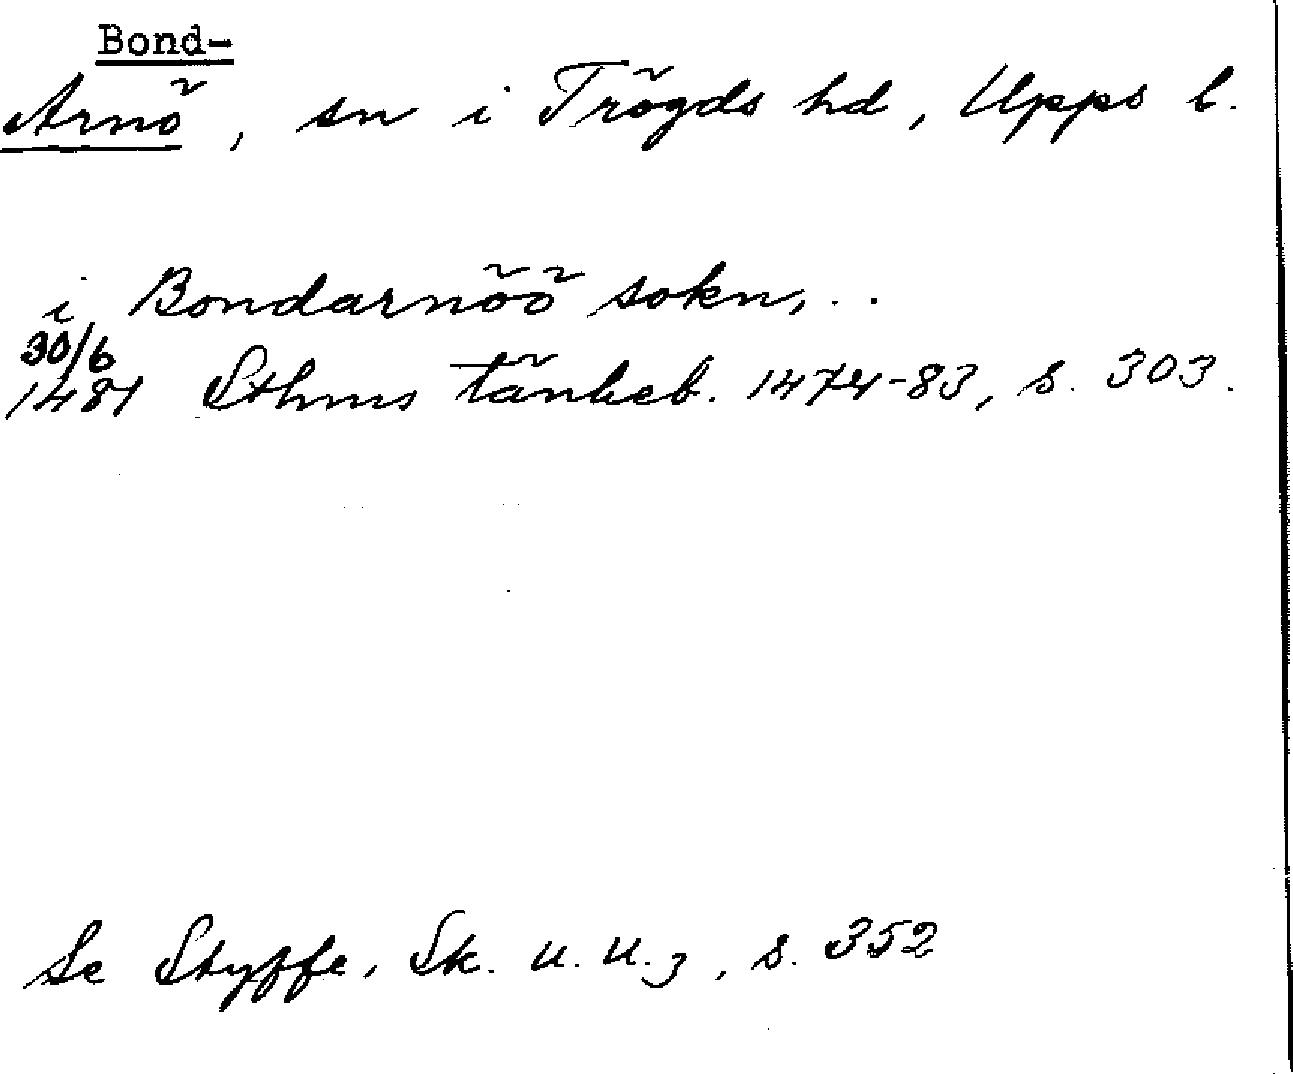 Bond-
Arnö, sn i Trögds hd, Upps l.
i Bondarnöö sokn, . .
30/6
1481 Sthms tänkeb. 1474-83, s. 303.
Se Styffe, Sk. u. U.3, s. 352